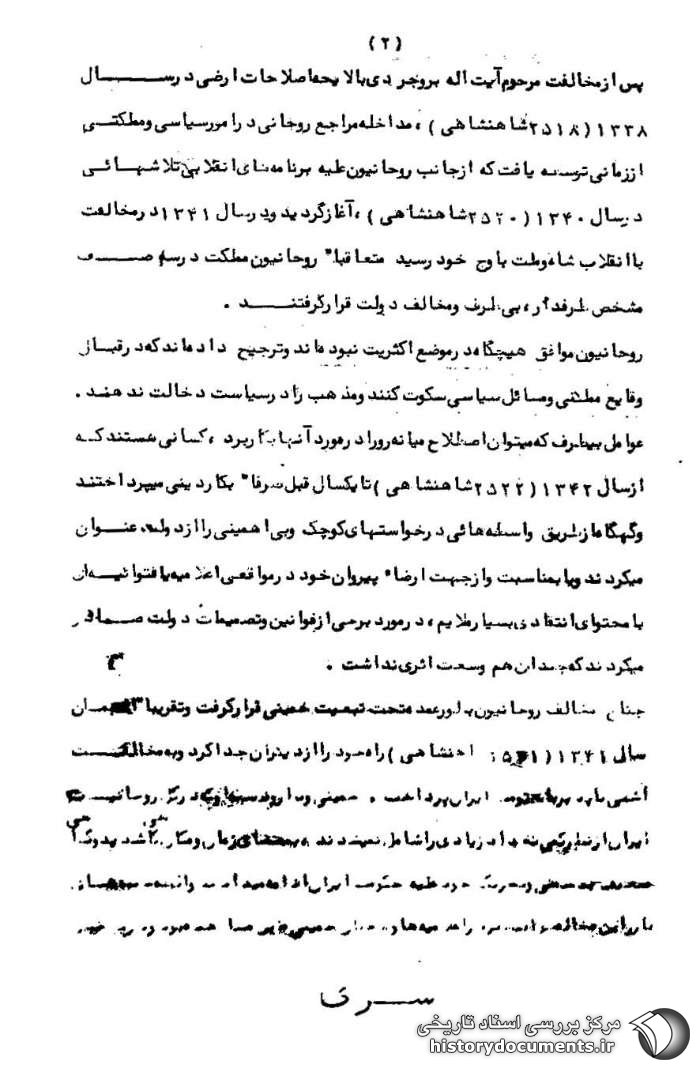 (۲)
پس از مخالفت مرحوم آیت اله بروجردی با لایحه اصلاحات ارضی در سال
۱۳۳۸ (۲۵۱۸ شاهنشاهی) ، مداخله مراجع روحانی در امور سیاسی و مملکتی
از زمانی توسعه یافت که از جانب روحانیون علیه برنامه‌های انقلابی تلاشهائی
در سال ۱۳۴۰ (۲۵۲۰ شاهنشاهی) ، آغاز گردید و در سال ۱۳۴۱ در مخالفت
با انقلاب شاه و ملت باوج خود رسید متعاقبا" روحانیون مملکت در سه صف
مشخص طرفدار ، بی‌طرف و مخالف دولت قرار گرفتند .
روحانیون موافق هیچگاه در موضع اکثریت نبوده‌اند و ترجیح داده‌اند که در قبال
وقایع مملکتی و مسائل سیاسی سکوت کنند و مذهب را در سیاست دخالت ندهند .
عوامل بیطرف که میتوان اصطلاح میانه‌رو را در مورد آنها بکار برد ، کسانی هستند که
از سال ۱۳۴۲ (۲۵۲۲ شاهنشاهی) تا یکسال قبل صرفا" بکار دینی میپرداختند
و گهگاه از طریق واسطه‌هائی درخواستهای کوچک و بی اهمیتی را از دولت عنوان
میکردند و یا بمناسبت و از جهت ارضا پیروان خود در مواقعی اعلامیه یا فتوائیه‌ای
با محتوای انتقادی بسیار ملایم ، در مورد برخی از قوانین و تصمیمات دولت صادر
میکردند که چندان هم وسعت اثری نداشت .
جناح مخالف روحانیون بطور عمده تحت تبعیت خمینی قرار گرفت و تقریبا از همان
سال ۱۳۴۱ ( شاهنشاهی) راه خود را از دیگران جدا کرد و به مخالفت
ایران پرداخت . خمینی و
ایران از نظر زیادی را شامل نمیشدند ،
علیه حکومت ایران ادامه میداد
با
سری
مرکز بررسی اسناد تاریخی
historydocuments.ir